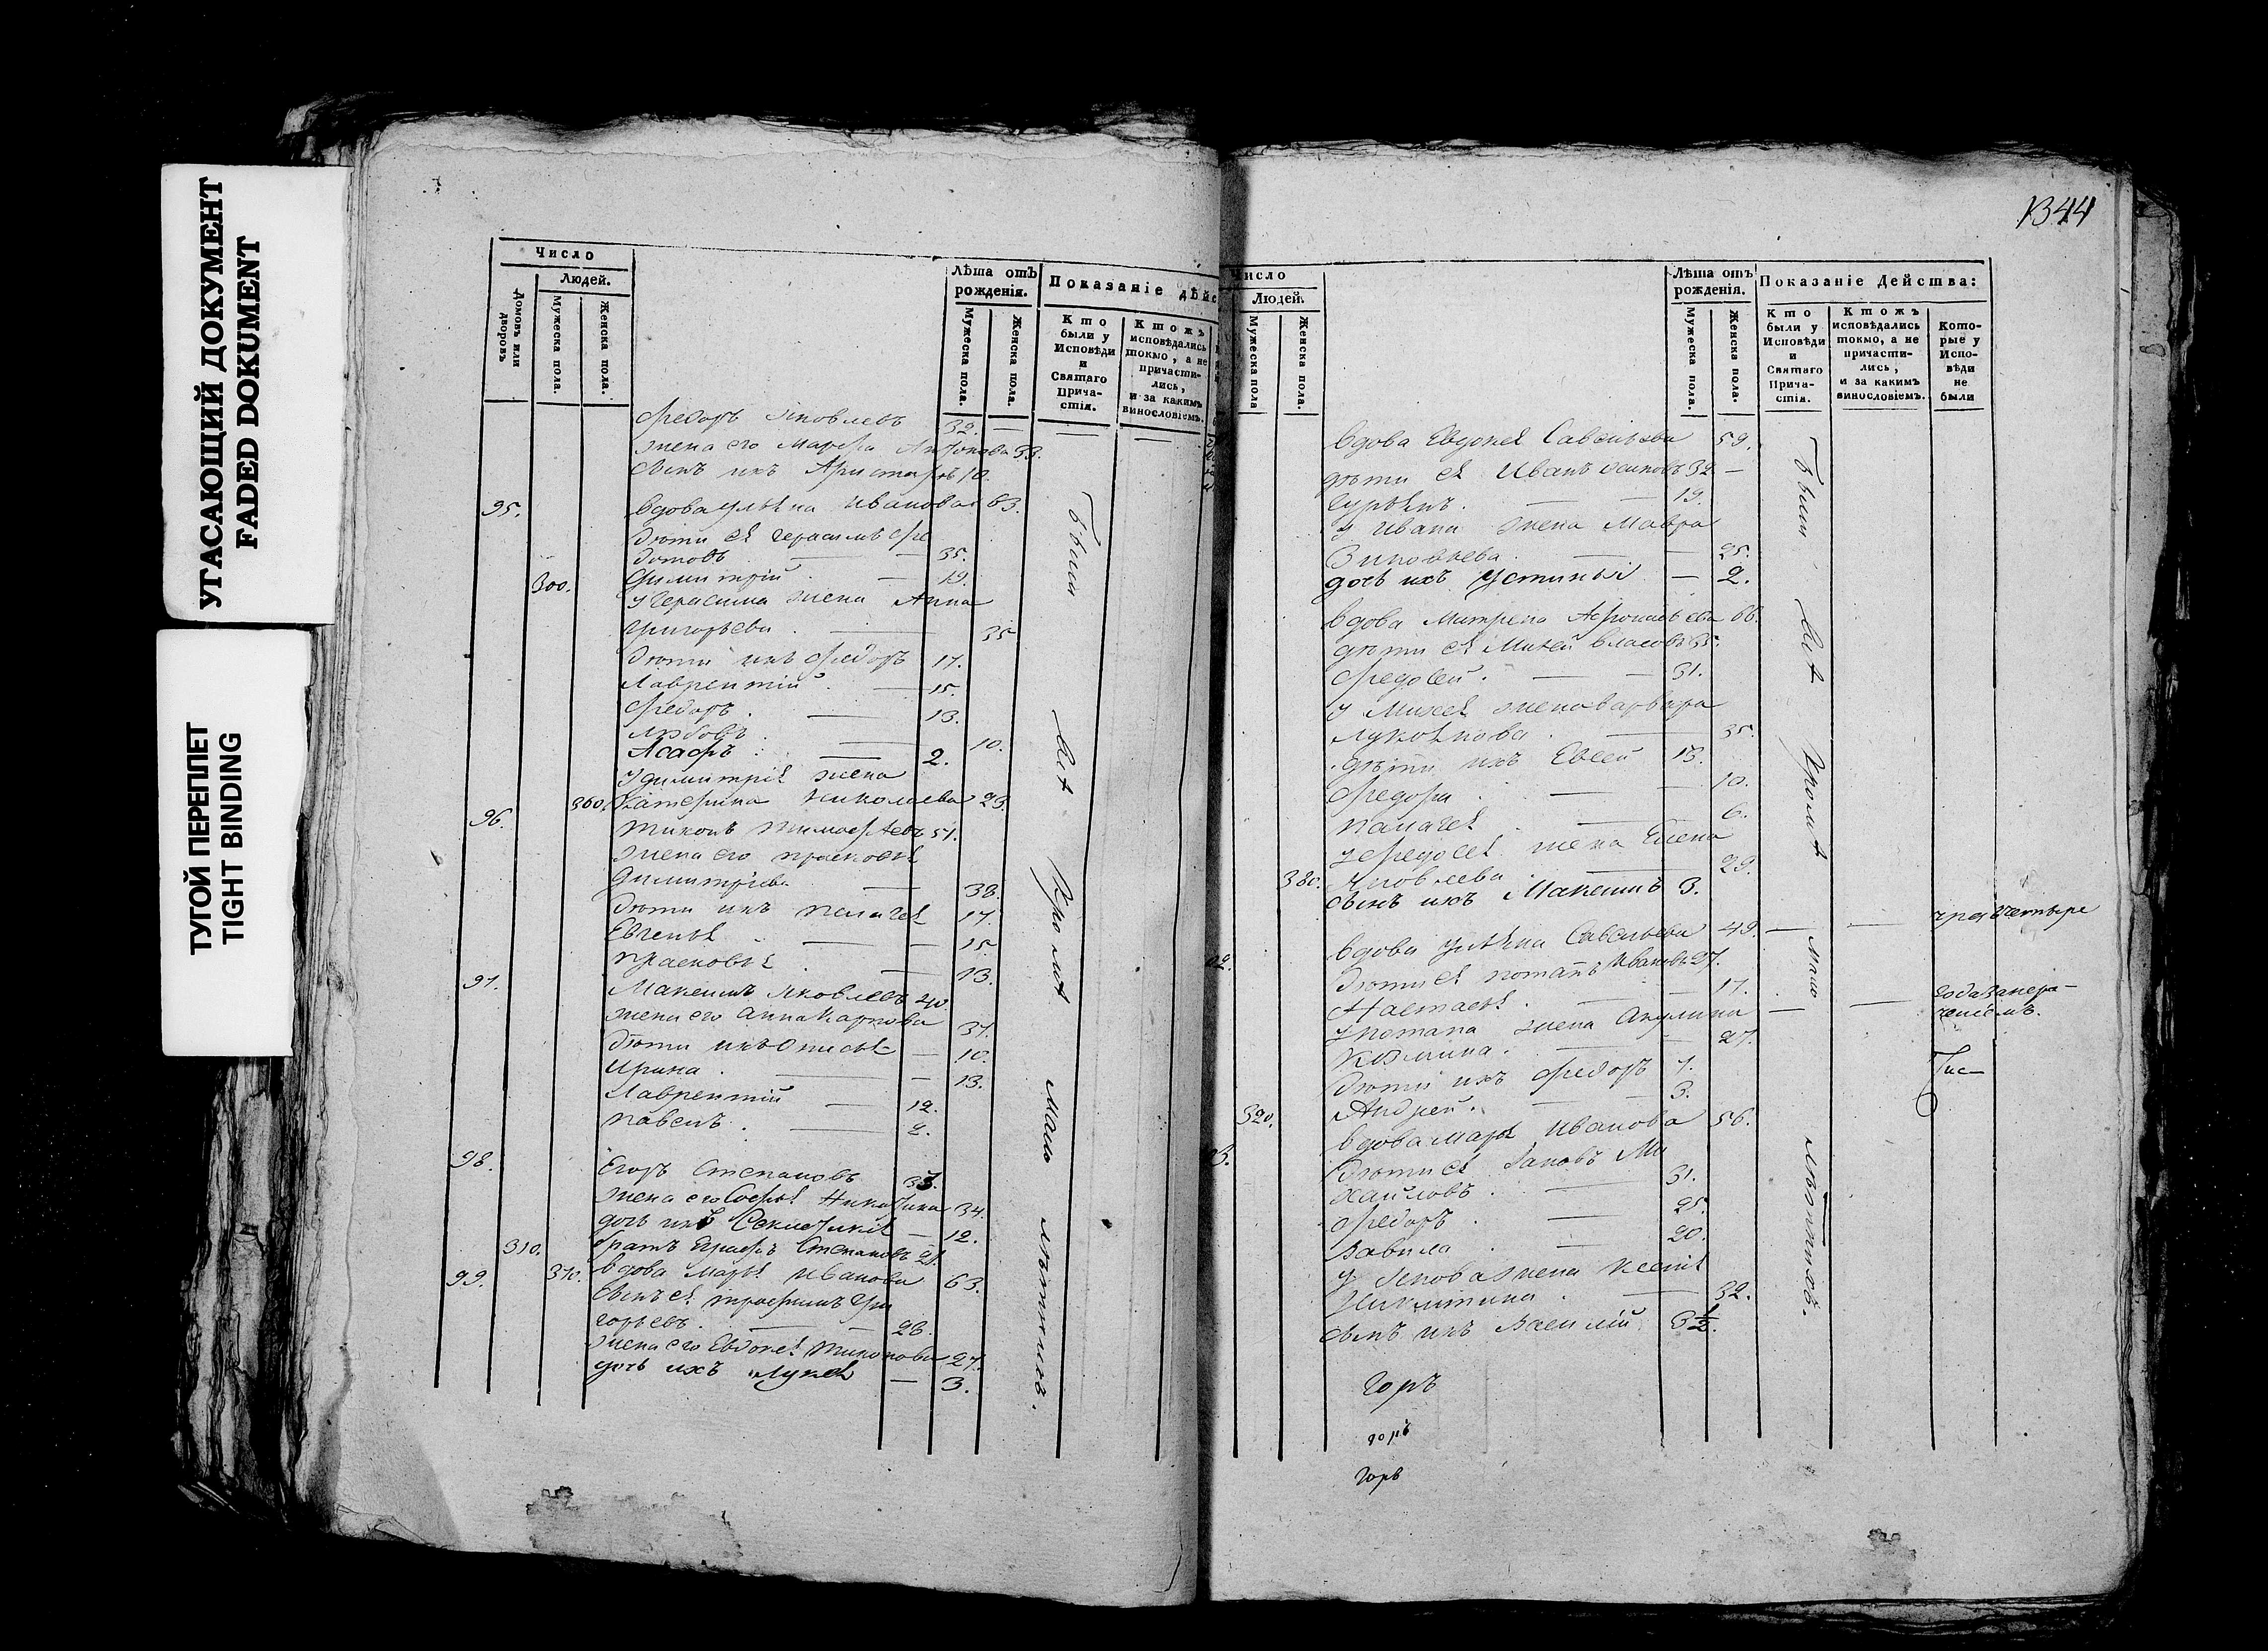 УГАСАЮЩИЙ ДОКУМЕНТ
FADED DOKUMENT
ТУГОЙ ПЕРЕПЛЕТ
TIGHT BINDING
Число
Людей.
Домовъ или дворовъ
Мужеска пола.
Женска пола.
Лѣта отъ рожденія.
Мужеска пола.
Женска пола.
Показаніе дѣйс
Кто были у Исповѣди и Святаго Прича-стія.
Ктожъ исповѣдались токмо, а не причасти-лись, и за какимъ винословіемъ.
Федоръ Яковлевъ 32. —
жена его Марфа 33.
сынъ ихъ 10.
95. вдова Ульяна Иванова 63.
дѣти ея Герасимъ Фе
дотовъ — 35.
300. Димитрій — 19.
у Герасима жена Анна
Григорьева — 35
дѣти ихъ Федоръ 17.
Лаврентій — 15.
Федоръ — 13.
Любовь — 10.
Асафъ — 2.
у Димитрія жена
360. Катерина Николаева 23.
96. Тихонъ Тимофѣевъ 51.
жена его Прасковья
Димитріева — 38.
дѣти ихъ Пелагея 17.
Евгенья — 15.
Прасковья — 13.
97. Максимъ Яковлевъ 40.
жена его Анна Карпова 37.
дѣти ихъ — 10.
Ирина — 13.
Лаврентій — 12.
Павелъ — 2.
98. Егоръ Степановъ
жена его Софья Никитина 34.
дочь ихъ — 12.
310. братъ Степановъ
99. 370. вдова Марья Иванова 63.
сынъ ея Трофимъ Гри
горьевъ — 28.
жена его Евдокея Тихонова 27.
дочь ихъ Лукея — 3.
Были всѣ кромѣ мало лѣтнихъ.
1344
Число
Людей.
Мужеска пола
Женска пола.
Лѣта отъ рожденія.
Мужеска пола.
Женска пола.
Показаніе Действа:
Кто были у Исповѣди и Святаго Прича-стія.
Ктожъ исповѣдались токмо, а не причасти-лись, и за какимъ винословіемъ.
Кото-рые у Испо-вѣди не были
вдова Евдокея Савельева 59.
дѣти ея Иванъ 32 —
Гурьянъ — 19.
у Ивана жена Мавра
Зиновьева — 25.
дочь ихъ Устинья — 2.
вдова Матрена 66.
дѣти ея Михей Власовъ 35.
Федосей — 31.
у Михея жена Варвара
Лукьянова — 35.
дѣти ихъ Евсей 13.
Федора — 10.
Палагея — 6.
у Федосея жена Елена
380. Яковлева — 29.
сынъ ихъ Максимъ 3.
вдова Ульяна Савельева 49. — —
02. дѣти ея Потапъ Ивановъ 27.
Настасья — 17.
у Потапа жена Акулина — —
Козмина — 27.
дѣти ихъ Федоръ 7.
320. Андрей — 3.
вдова Марья Иванова 56.
03. дѣти ея Яковъ Ми
хайловъ — 31.
Федоръ — 25.
Вавила — 20.
у Якова жена Ксенія
Никитина — 32.
сынъ ихъ Василій ½.
Были всѣ кромѣ мало лѣтнихъ.
чрез четыре
года
Горъ
горъ
Горь